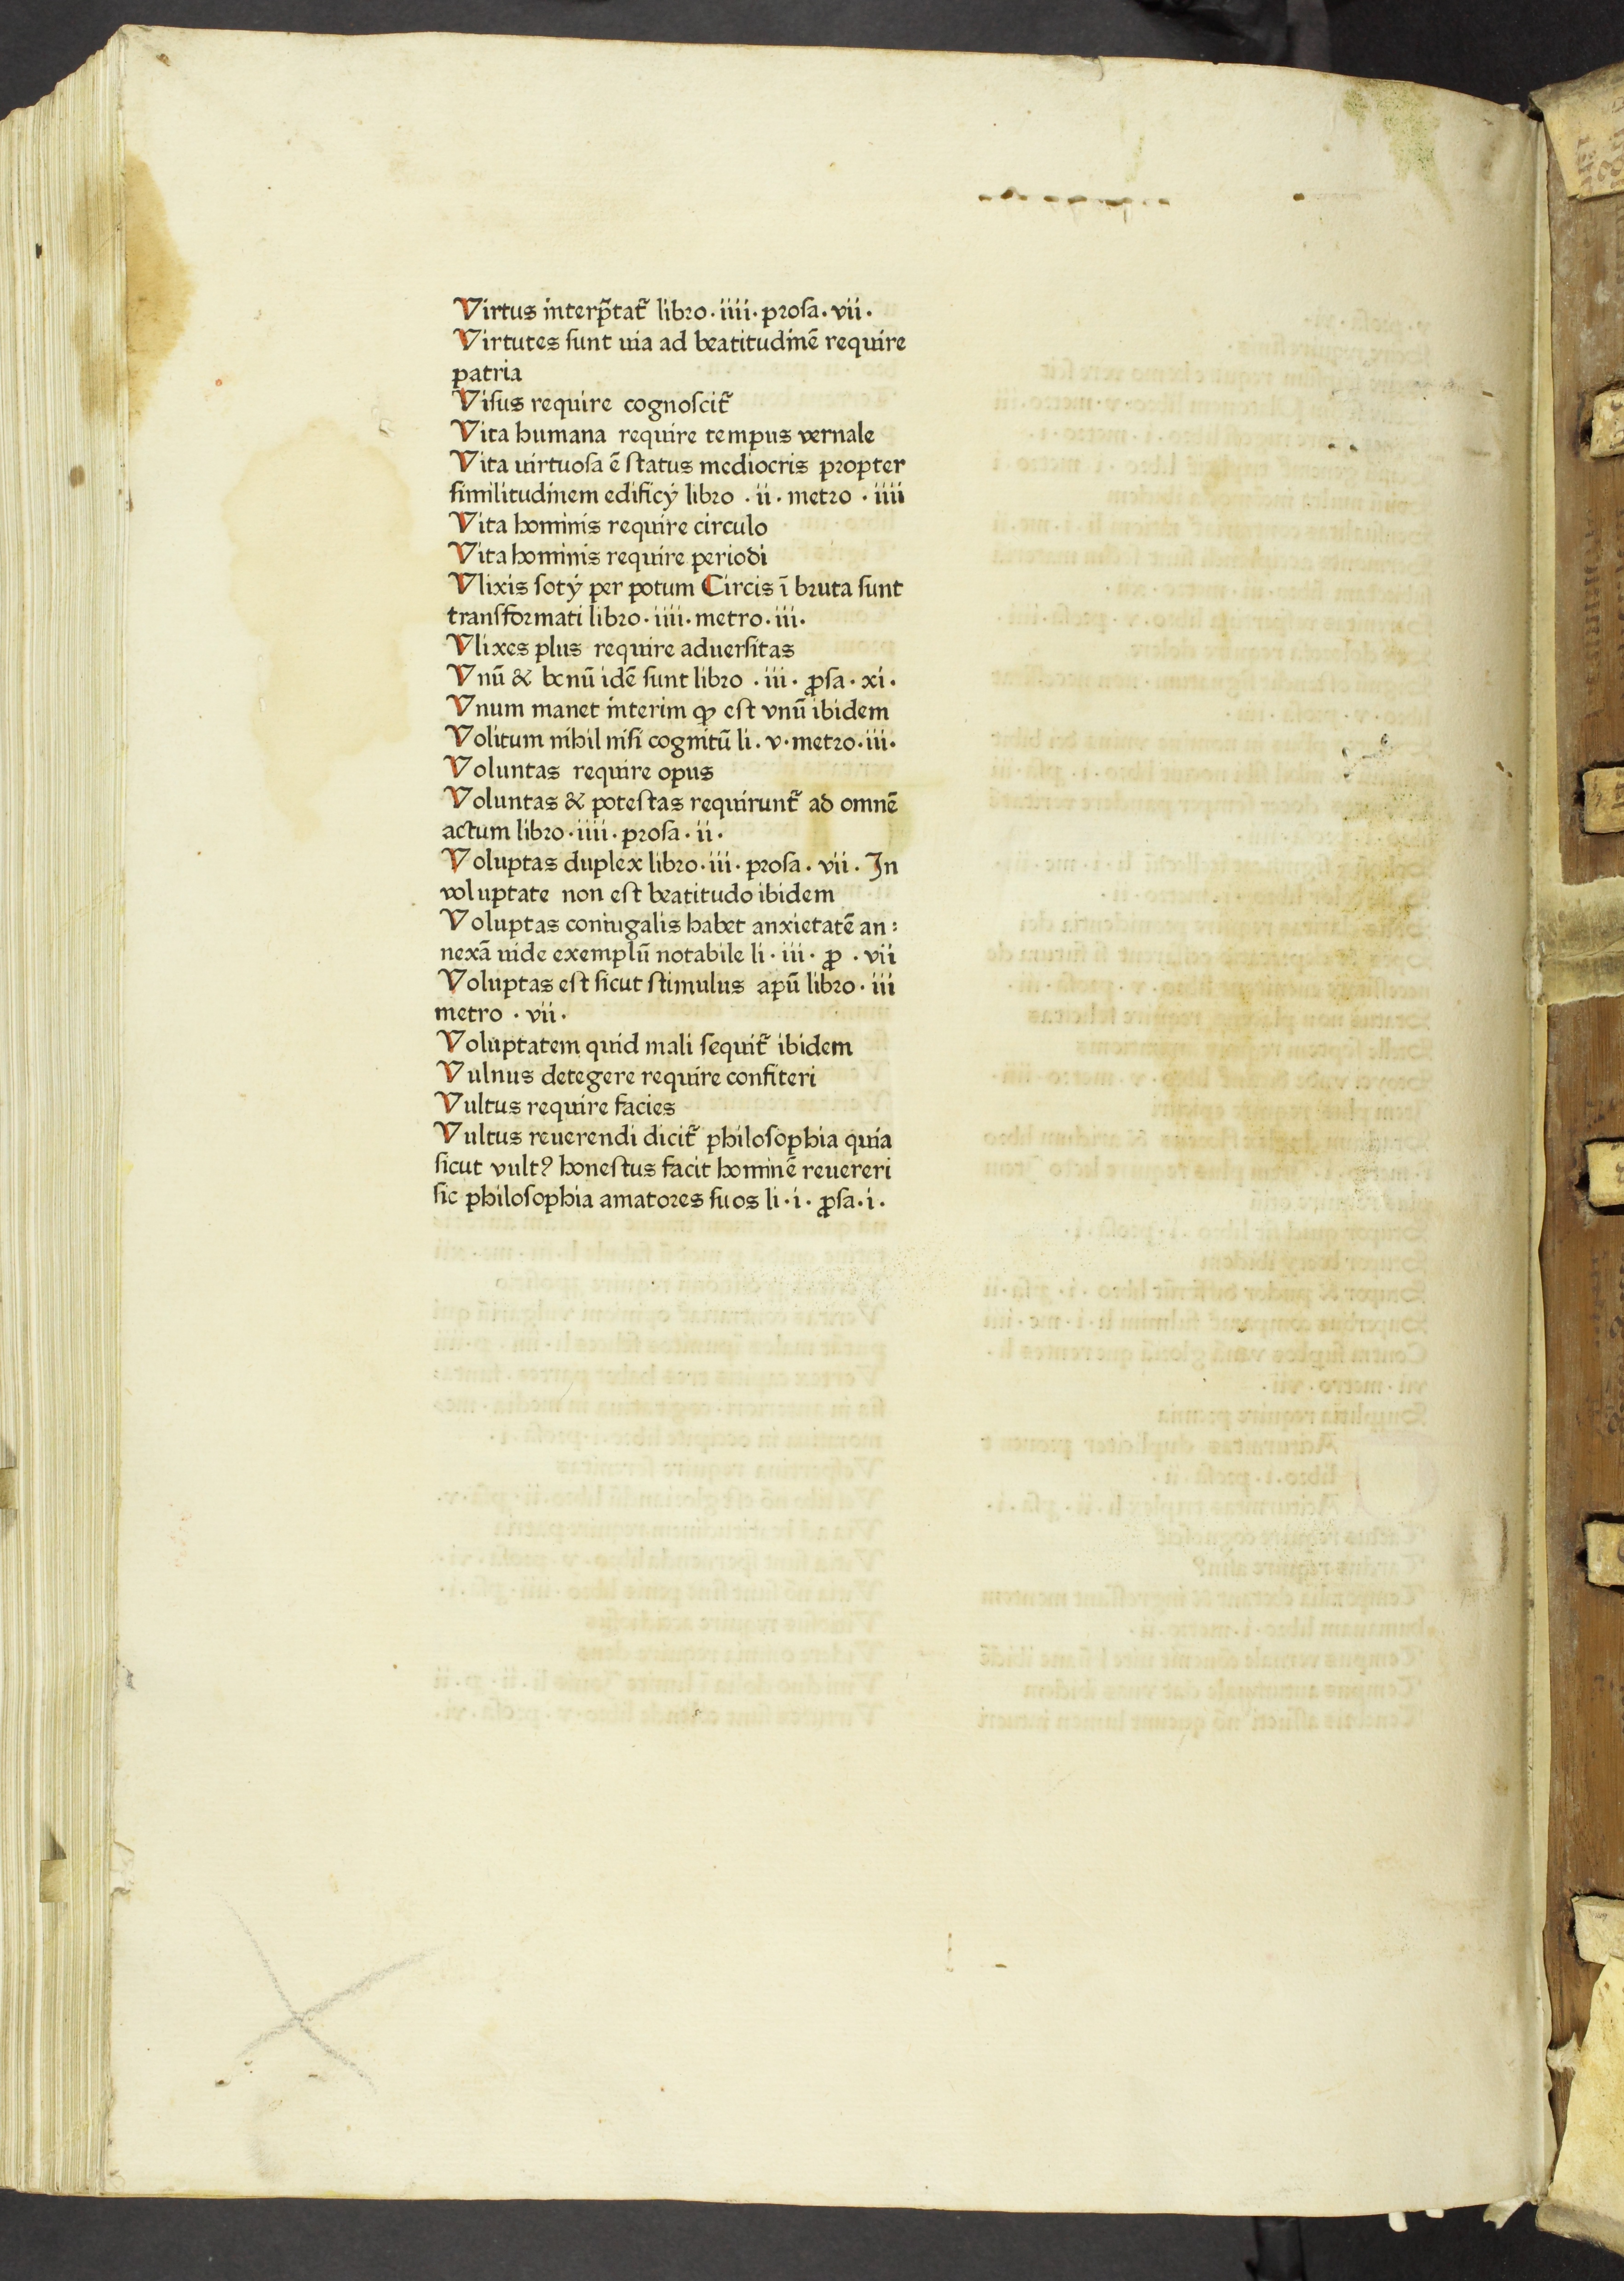 Virtus interp̃tat᷑ libro · iiii · prosa · vii ·
Virtutes sunt uia ad beatitudinẽ require
patria
Visus require cognoscit᷑
Vita humana require tempus vernale
Vita uirtuosa ẽ status mediocris propter
similitudinem edificÿ libro · ii · metro · iiii
Vita hominis require circulo
Vita hominis require periodi
Vlixis sotÿ per potum Circis ĩ bruta sunt
transformati libro · iiii · metro · iii ·
Vlixes plus require aduersitas
Vnũ & bonũ idẽ sunt libro · iii · ꝓsa · xi ·
Vnum manet interim ꝙ est vnũ ibidem
Volitum nihil nisi cognitũ li · v · metro · iii ·
Voluntas require opus
Voluntas & potestas requirunt᷑ ad omnẽ
actum libro · iiii · prosa · ii ·
Voluptas duplex libro · iii · prosa · vii · In
voluptate non est beatitudo ibidem
Voluptas coniugalis habet anxietatẽ an:
nexã uide exemplũ notabile li · iii · ꝓ · vii
Voluptas est sicut stimulus apũ libro · iii
metro · vii ·
Voluptatem quid mali sequit᷑ ibidem
Vulnus detegere require confiteri
Vultus require facies
Vultus reuerendi dicit᷑ philosophia quia
sicut vultꝰ honestus facit hominẽ reuereri
sic philosophia amatores suos li · i · ꝓsa · i ·